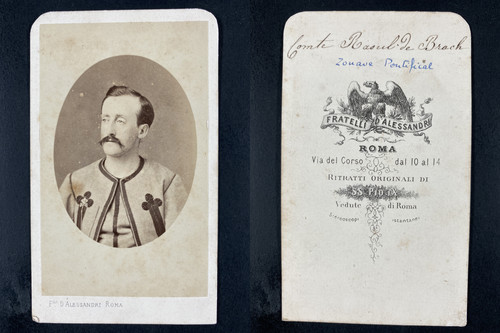 FLLI D'ALESSANDRI ROMA
Comte Raoul de Brach
Zouave Pontifical
FRATELLI D'ALESSANDRI
ROMA
Via del Corso dal 10 al 14
RITRATTI ORIGINALI DI
SS. PIO IX
Vedute di Roma